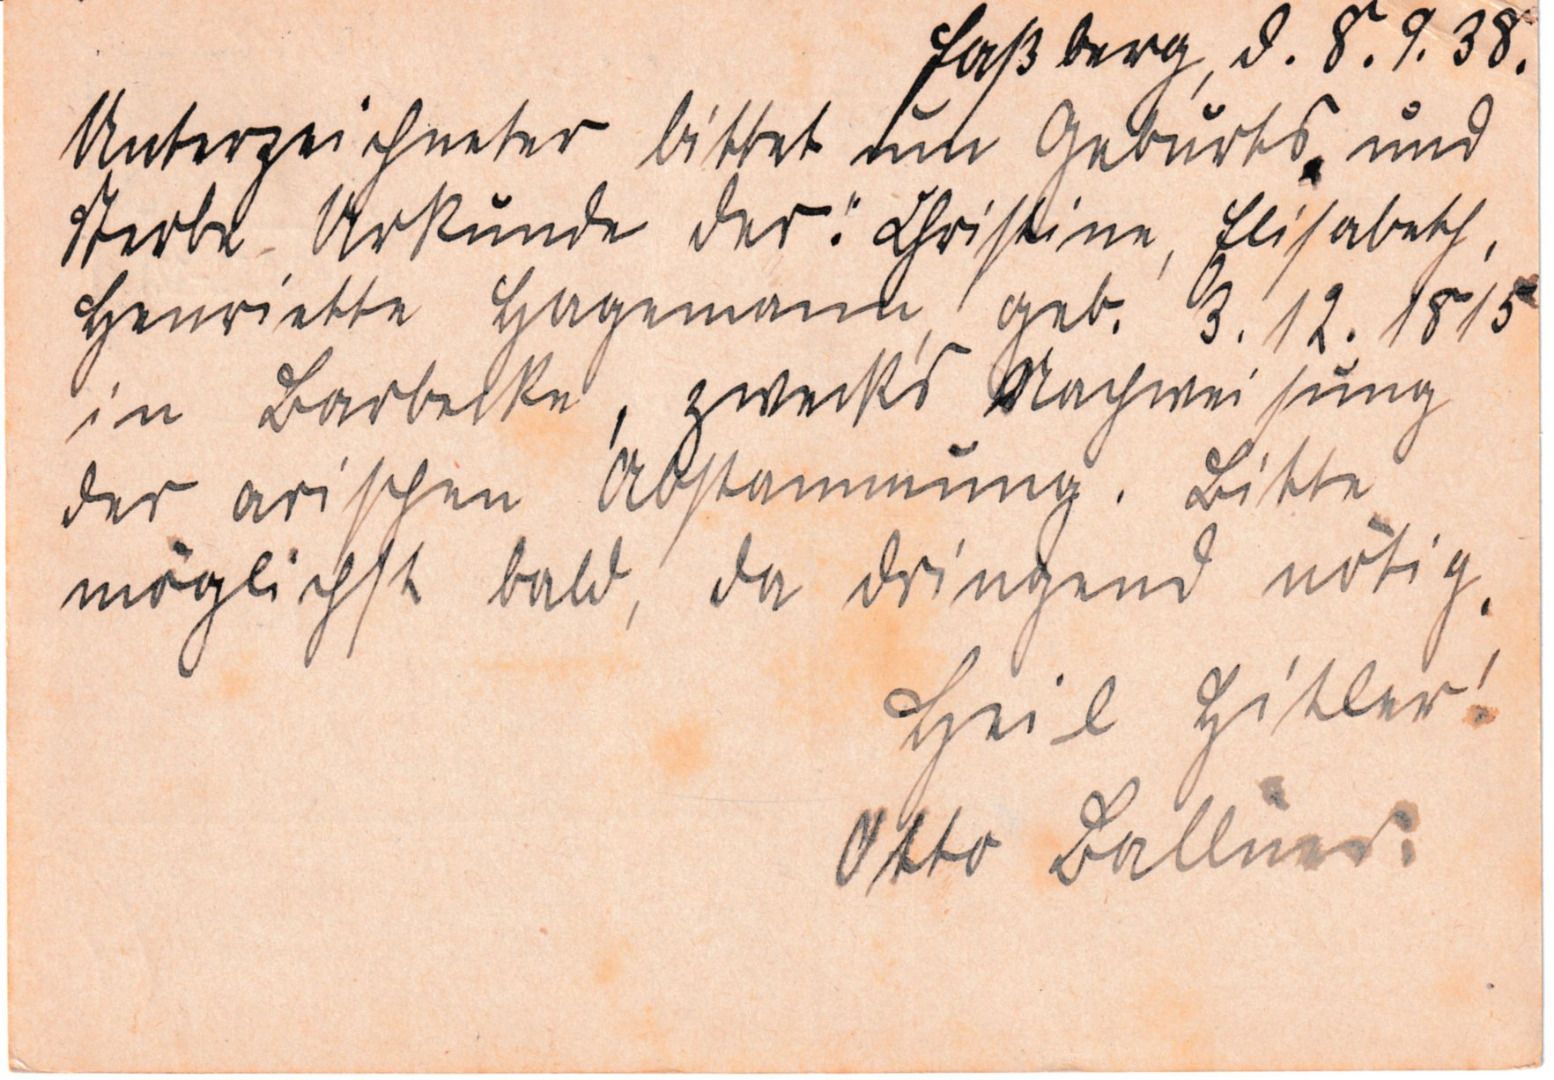 Faßberg, d. 8.9.38.
Unterzeichneter bittet um Geburts- und
Sterbe-Urkunde der: Christine, Elisabeth,
Henriette Hagemann, geb. 3.12.1815
in Barbecke, zwecks Nachweisung
der arischen Abstammung. Bitte
möglichst bald, da dringend nötig.
Heil Hitler!
Otto